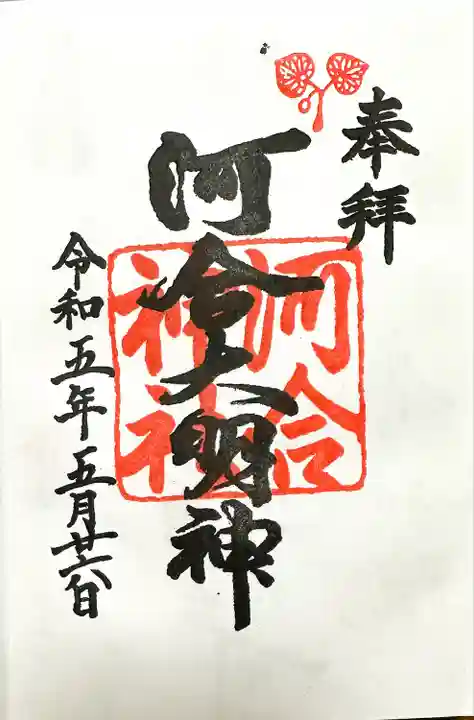 奉拝
河合大明神
河合
神社
令和五年五月廿六日